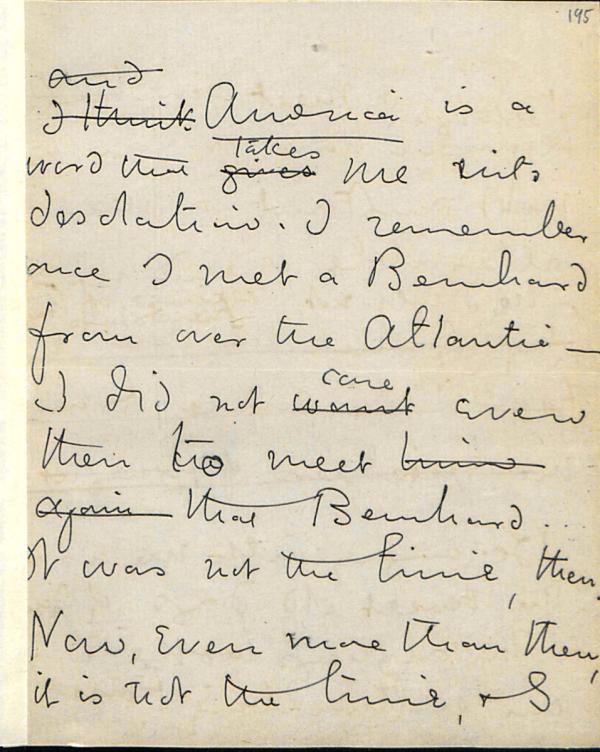 195
and
I think America is a
takes
word that gives me into
desolation. I remember
once I met a Bernhard
from over the Atlantic —
care
I did not want even
then to meet him
again that Bernhard...
It was not the time, then.
Now, even more than then,
it is not the time, + I